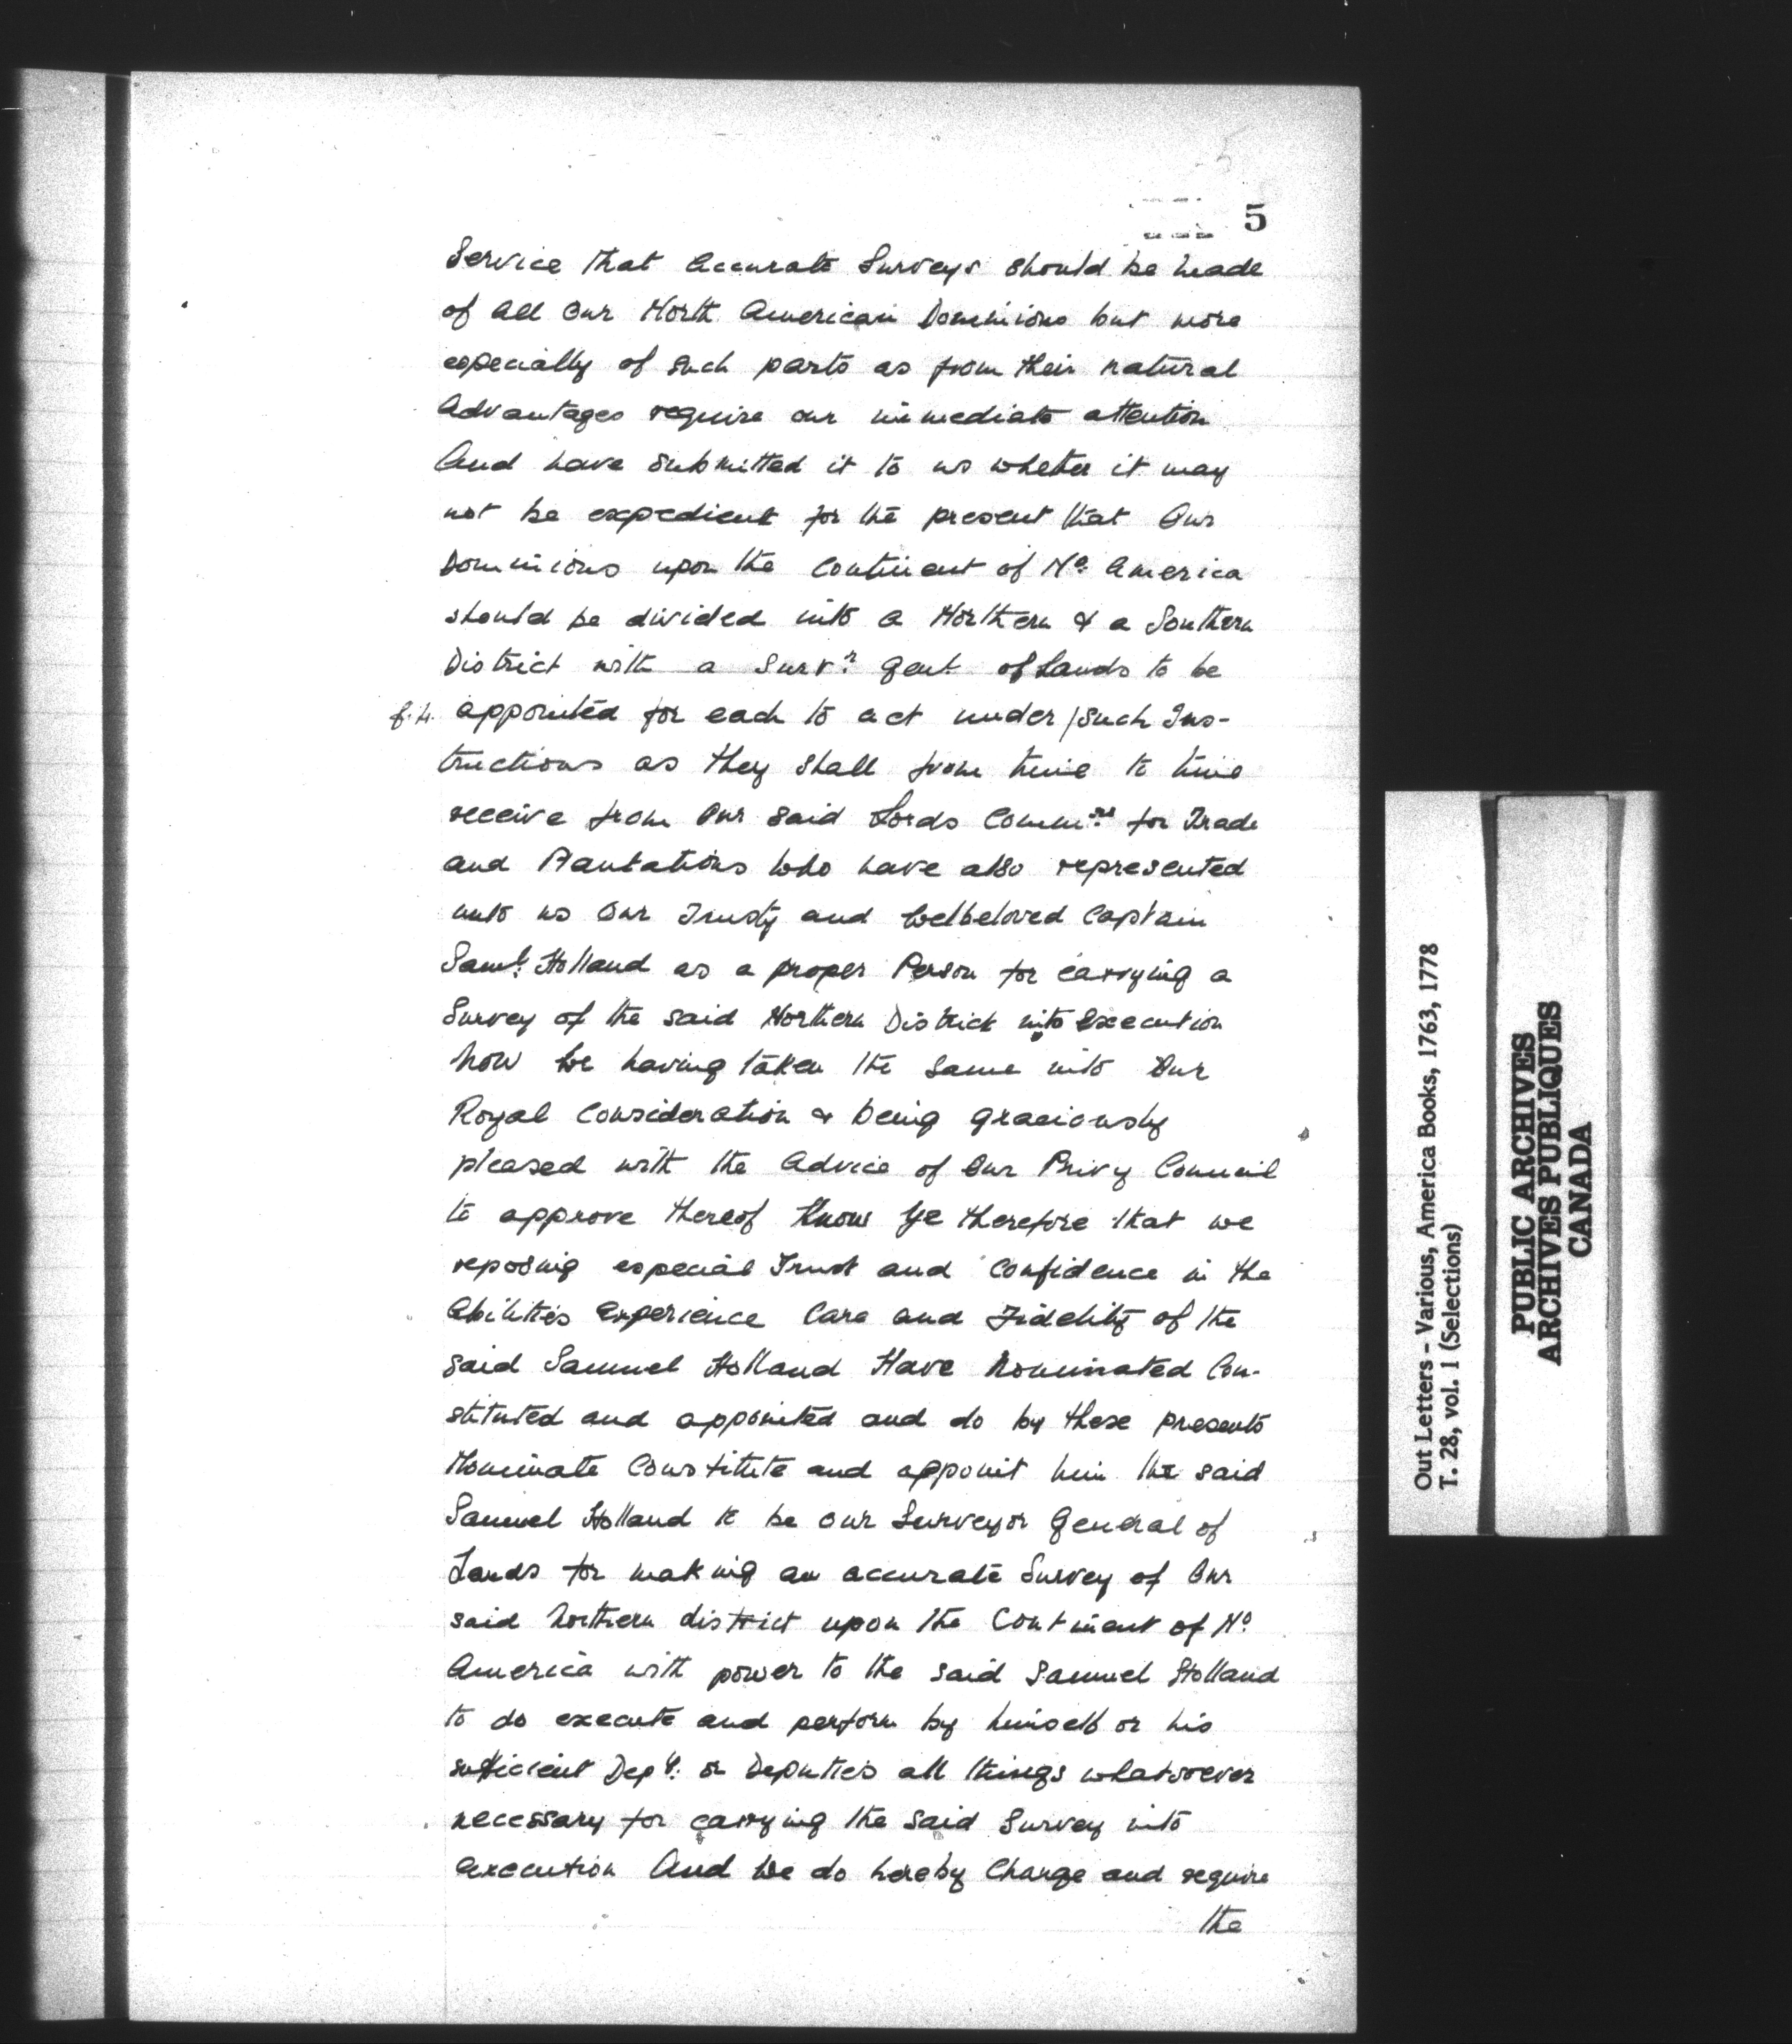 5
Service that Accurate Surveys should be made
of all Our North American Dominions but more
especially of such parts as from their natural
Advantages require our immediate attention
And have submitted it to us whether it may
not be expedient for the present that Our
Dominions upon the Continent of No. America
should be divided into a Northern & a Southern
District with a Survr. Genl. of Lands to be
f.4. appointed for each to act under / such Ins-
tructions as they shall from time to time
receive from Our said Lords Commrs. for Trade
and Plantations Who have also represented
unto us Our Trusty and Welbeloved Captain
Saml. Holland as a proper Person for carrying a
Survey of the said Northern District into Execution
Now We having taken the same into Our
Royal Consideration & being graciously
pleased with the Advice of Our Privy Council
to approve thereof Know Ye therefore that we
reposing especial Trust and Confidence in the
Abilities Experience Care and Fidelity of the
said Samuel Holland Have Nominated Con-
stituted and appointed and do by these presents
Nominate Constitute and appoint him the said
Samuel Holland to be our Surveyor General of
Lands for making an accurate Survey of Our
said Northern district upon the Continent of No.
America with power to the said Samuel Holland
to do execute and perform by himself or his
sufficient Depy. or Deputies all things whatsoever
necessary for carrying the said Survey into
execution And We do hereby Charge and require
the
Out Letters - Various, America Books, 1763, 1778
T. 28, vol. 1 (Selections)
PUBLIC ARCHIVES
ARCHIVES PUBLIQUES
CANADA